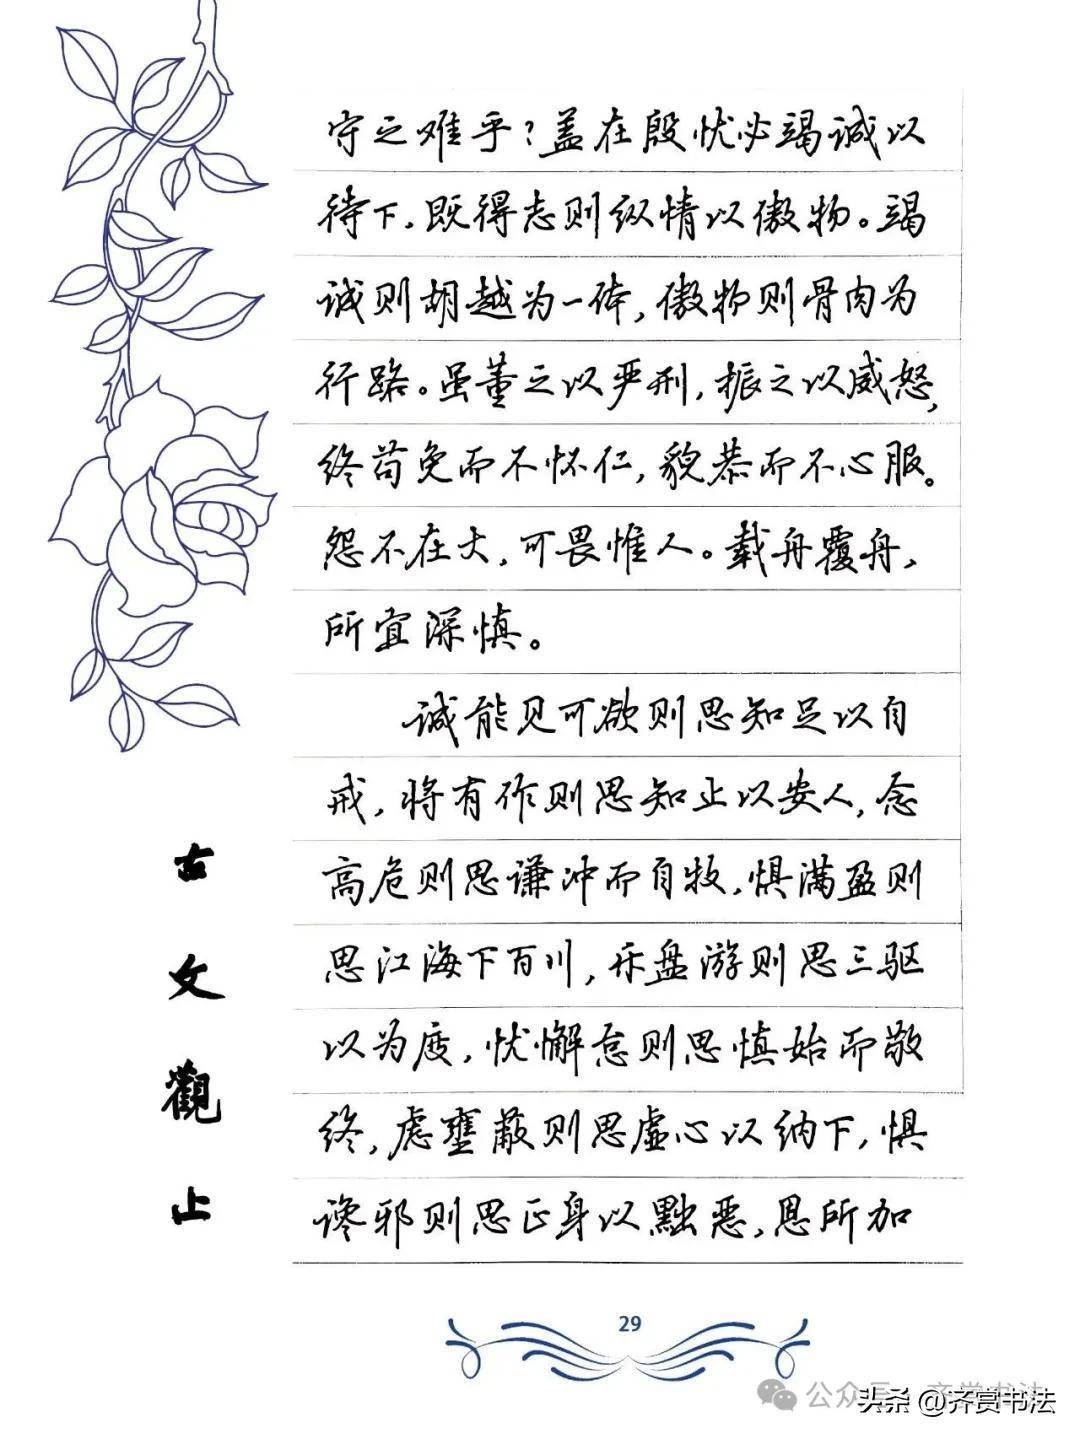 守之难乎？盖在殷忧必竭诚以
待下，既得志则纵情以傲物。竭
诚则胡越为一体，傲物则骨肉为
行路。虽董之以严刑，振之以威怒，
终苟免而不怀仁，貌恭而不心服。
怨不在大，可畏惟人。载舟覆舟，
所宜深慎。
诚能见可欲则思知足以自
戒，将有作则思知止以安人，念
高危则思谦冲而自牧，惧满盈则
思江海下百川，乐盘游则思三驱
以为度，忧懈怠则思慎始而敬
终，虑壅蔽则思虚心以纳下，惧
谗邪则思正身以黜恶，恩所加
古文觀止
29
公众号·齐赏书法
头条@齐赏书法